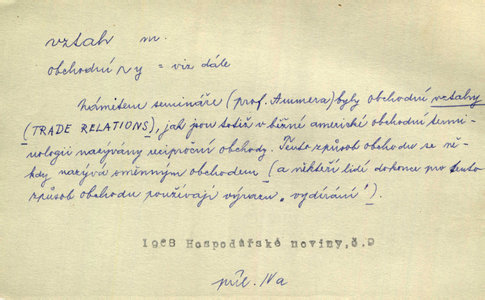 vztah m.
obchodní v y = viz dále
Námětem semináře (prof. Ammera) byly obchodní vztahy
(TRADE RELATIONS), jak jsou totiž v běžné americké obchodní termi-
nologii nazývány reciproční obchody. Tento způsob obchodu se ně-
kdy nazývá směnným obchodem (a někteří lidé dokonce pro tento
způsob obchodu používají výrazu „vydírání").
1968 Hospodářské noviny, č.9
příl. IVa